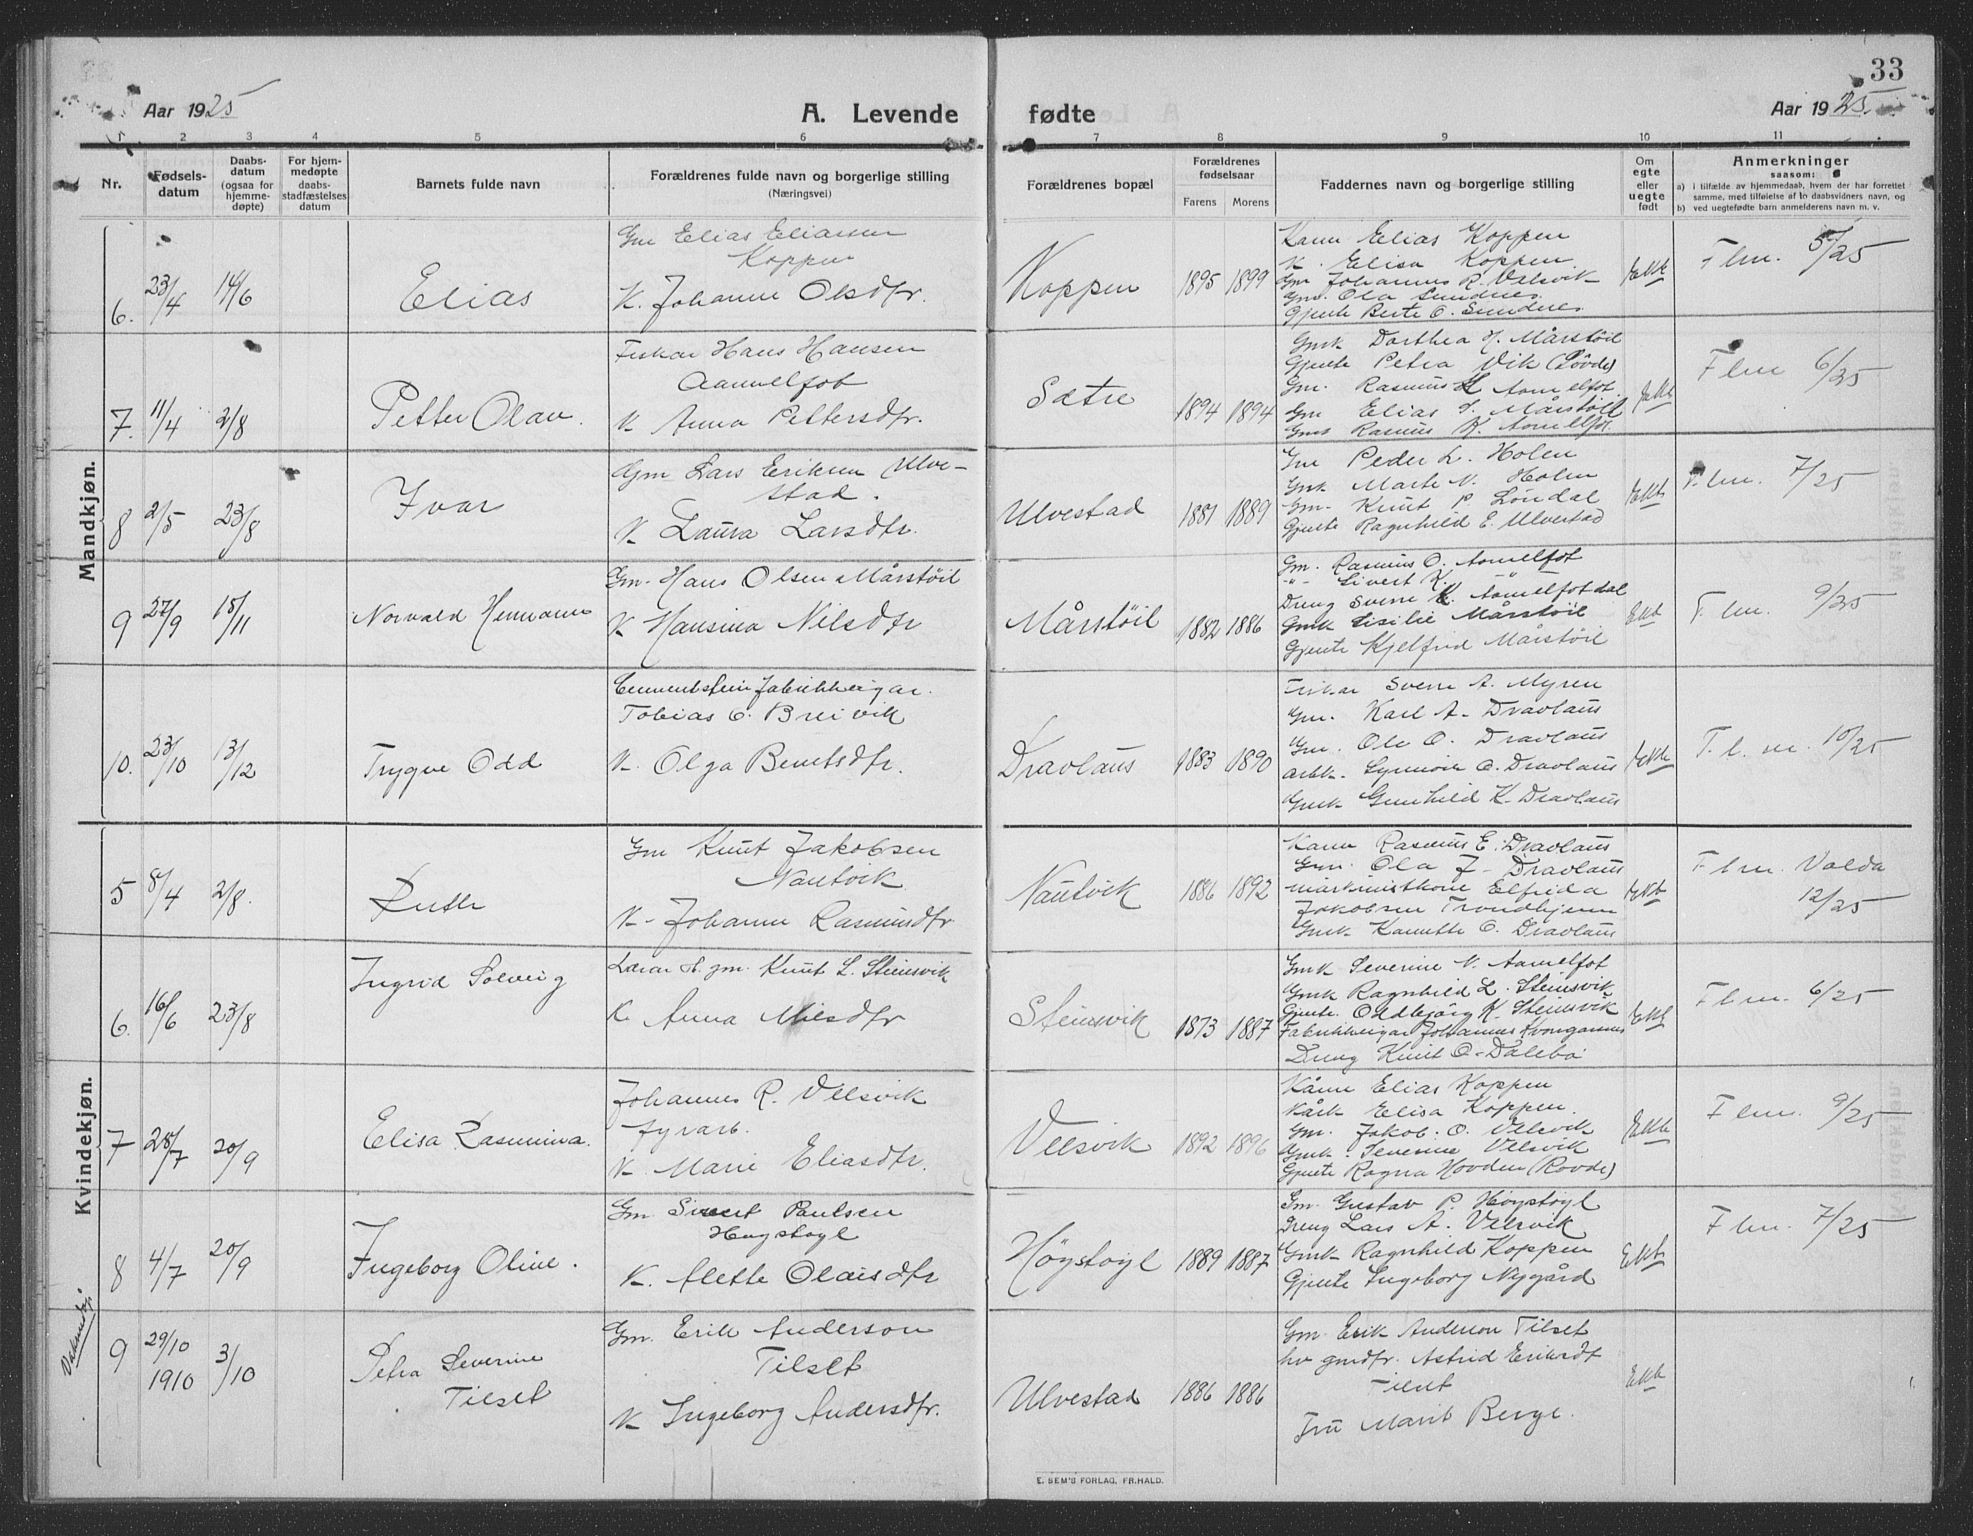 33
Aar 1925
A. Levende fødte
Aar 1925
1 2 3 4 5 6 7 8 9 10 11
Nr.
Fødsels-
datum
Daabs-
datum
(ogsaa for
hjemme-
døpte)
For hjem-
medøpte
daabs-
stadfæstelses
datum
Barnets fulde navn
Forældrenes fulde navn og borgerlige stilling
(Næringsvei)
Forældrenes bopæl
Forældrenes
fødselsaar
Farens Morens
Faddernes navn og borgerlige stilling
Om
egte
eller
uegte
født
Anmerkninger
saasom:
a) i tilfælde av hjemmedaab, hvem der har forrettet
samme, med tilføielse af to daabsvidners navn, og
b) ved uegtefødte barn anmelderens navn m. v.
Mandkjøn.
6. 23/4 14/6
Elias
Gm Elias Eliassen
Koppen
K. Johanne Olsdtr.
Koppen
1895 1899
Kaarm Elias Koppen
K. Elisa Koppen
Gm Johannes R. Velsvik
Gm. Ola Sundnes
Gjente Berte O. Sundnes
Ekte
Flm. 5/25
7. 11/4 2/8
Petter Olav.
Fiskar Hans Hansen
Aamelfot
K Anna Pettersdtr.
Sætre
1894 1894
Gmk Dorthea H. Mårstøil
Gjente Petra Vik (Søvde)
Gm. Rasmus Aamelfot
Gm Elias S. Mårstøil
Gmk Rasmus K. Aamelfot.
Ekte
Flm 6/25
8 2/5 23/8
Ivar
Gm Lars Eriksen Ulve-
stad.
K Laura Larsdtr.
Ulvestad
1881 1889
Gm Peder L. Holen
Gmk Marte N. Holen
Gm. Knut P. Løndal
Gjente Ragnhild E. Ulvestad
Ekte
Flm. 7/25
9 27/9 15/11
Norvald Hermann
Gm. Hans Olsen Mårstøil
K Hansina Nilsdtr
Mårstøil
1882 1886
Gm. Rasmus O. Aamelfot
-"- Sivert K.
Dreng Sverre K. Aamelfotdal
Gmk Sisilie Mårstøil
Gjente Kjelfrid Mårstøil
Ekte
Flm. 9/25
10. 23/10 13/12
Trygve Odd
Cementstein fabrikkeigar.
Tobias O. Breivik
K. Olga Berntsdtr.
Dravlaus
1883 1890
Fiskar Sverre A. Myren
Gm. Karl A. Dravlaus
Gm. Ole O. Dravlaus
arbk. Synnøve O. Dravlaus
Gmk Gunhild K. Dravlaus
Ekte
F.l.m. 10/25
Kvindekjøn.
5 8/4 2/8.
Ruth
Gm Knut Jakobsen
Nautvik
K. Johanne Rasmusdtr
Nautvik
1886 1892
Kaarm Rasmus E. Dravlaus
Gm. Ola J. Dravlaus
maskinistkone Elfrida
Jakobsen Trondhjem
Gmk Kanutte O. Dravlaus
Ekte
Flm. Volda
12/25
6. 16/6 23/8
Ingrid Solveig
Lærar og gm. Knut L. Steinsvik
K Anna Nilsdtr
Steinsvik
1873 1887
Gmk Severine N. Aamelfot
Gmk Ragnhild L. Steinsvik
Gjente. Oddbjørg K. Steinsvik
Fabrikkeigar Johannes Kvangarsnes
Dreng Knut O. Dalebø
Ekte
Flm. 6/25
7 28/7 20/9
Elisa Rasmina.
Johannes R. Velsvik
fyrarb.
K. Marie Eliasdtr.
Velsvik
1892 1896
Kårm Elias Koppen
Kårk Elisa Koppen.
Gm. Jakob. O. Velsvik
Gmk. Severine Velsvik
Gjente Ragna Hovden (Rovde)
Ekte
Flm. 9/25
8 4/7 20/9
Ingeborg Oline.
Gm Sivert Paulsen
Høgstøyl
K. Alette Olaisdtr
Høgstøyl
1889 1887
Gm. Gustav P. Høgstøyl
Dreng Lars A. Velsvik
Gmk Ragnhild Koppen
Gjente Ingeborg Nygård
Ekte
Flm. 7/25
9 29/10 1910 3/10
Petra Severine
Tilset
Gm. Erik Anderson
Tilset
K Ingeborg Andersdtr.
Ulvestad
1886 1886
Gm. Erik Anderson Tilset
hv gmdtr. Astrid Eriksdt
Tilset
Fru Marit Berge.
Ekte
E. SEM'S FORLAG, FR.HALD.